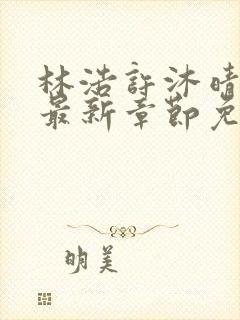 林浩許沐晴
最新章節免
明美